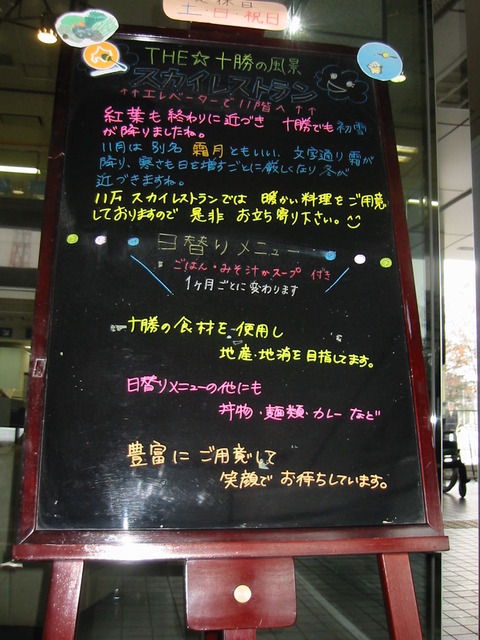 定休日
土・日・祝日
THE☆十勝の風景
スカイレストラン
↑↑エレベーターで11階へ↑↑
紅葉も終わりに近づき 十勝でも初雪
が降りましたね。
11月は別名 霜月ともいい、文字通り霜が
降り、寒さも日を増すごとに厳しくなり冬が
近づきますね。
11Fスカイレストランでは 暖かい料理をご用意
しておりますので 是非 お立ち寄り下さい。
日替りメニュー
ごはん・みそ汁かスープ 付き
1ヶ月ごとに変わります
十勝の食材を使用し
地産・地消を目指してます。
日替りメニューの他にも
丼物・麺類・カレーなど
豊富に ご用意して
笑顔で お待ちしています。